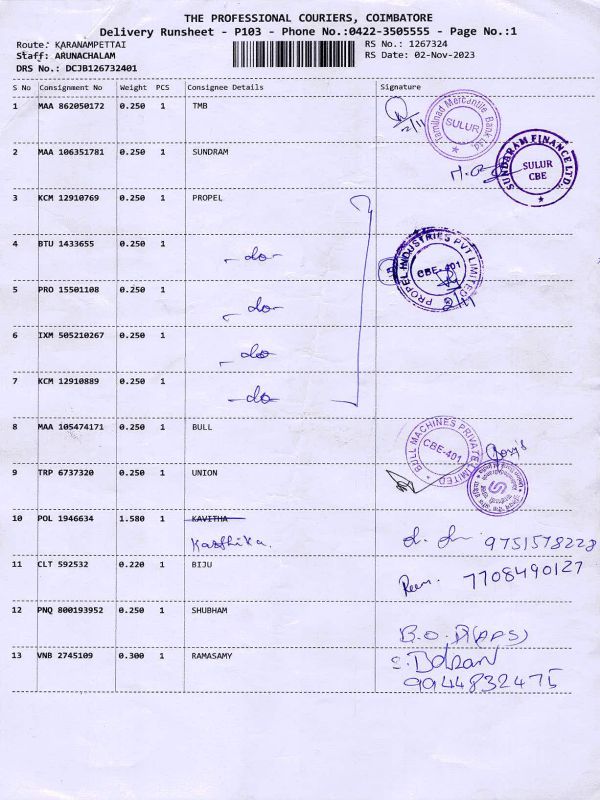 THE PROFESSIONAL COURIERS, COIMBATORE
Delivery Runsheet - P103 - Phone No.:0422-3505555 - Page No.:1
Route: KARANAMPETTAI RS No.: 1267324
Staff: ARUNACHALAM RS Date: 02-Nov-2023
DRS No.: DCJB126732401
S No Consignment No Weight PCS Consignee Details Signature
1 MAA 862050172 0.250 1 TMB 2/11 Tamilnad Mercantile Bank Ltd SULUR
2 MAA 106351781 0.250 1 SUNDRAM SUNDARAM FINANCE LTD., SULUR CBE
3 KCM 12910769 0.250 1 PROPEL
4 BTU 1433655 0.250 1 -do- PROPEL INDUSTRIES PVT LIMITED CBE-401
5 PRO 15501108 0.250 1 -do- 2/11
6 IXM 505210267 0.250 1 -do-
7 KCM 12910889 0.250 1 -do-
8 MAA 105474171 0.250 1 BULL BULL MACHINES PRIVATE LIMITED CBE-401
9 TRP 6737320 0.250 1 UNION
10 POL 1946634 1.580 1 KAVITHA
Karthika. 9751578228
11 CLT 592532 0.220 1 BIJU 7708490127
12 PNQ 800193952 0.250 1 SHUBHAM
13 VNB 2745109 0.300 1 RAMASAMY
9944832475